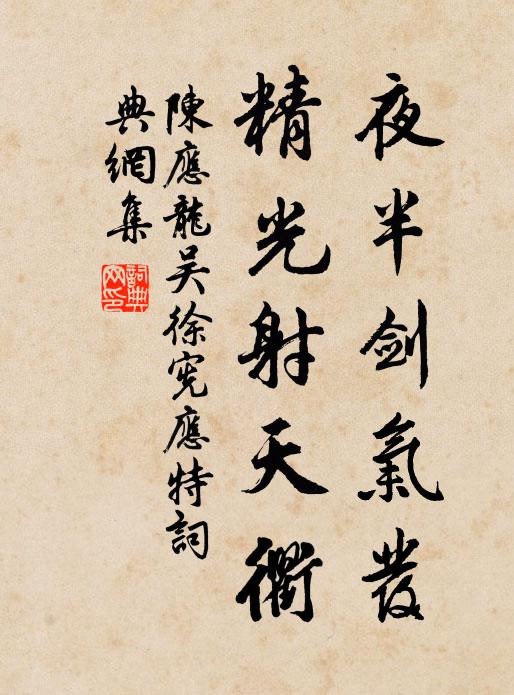 夜半剑氣發
精光射天衢
陳應龍吴徐宪應特詞
典網集
詞典网印